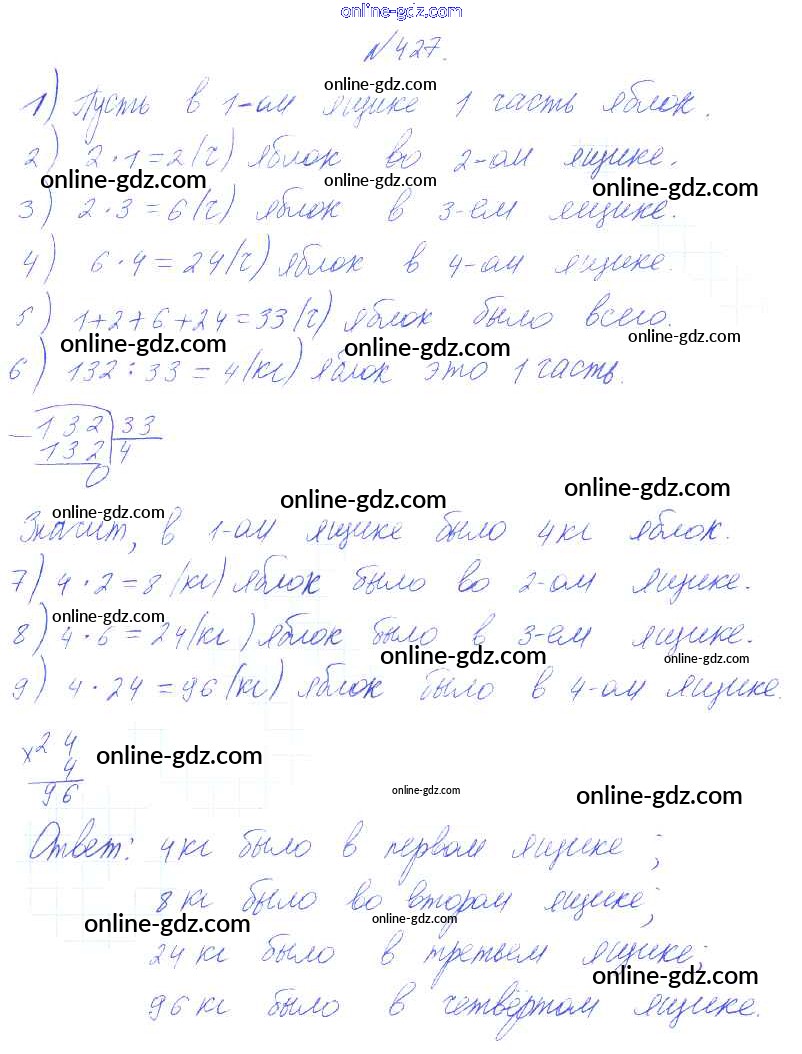 online-gdz.com
№427.
online-gdz.com
1) Пусть в 1-ом ящике 1 часть яблок.
2) 2·1=2(ч) яблок во 2-ом ящике.
online-gdz.com online-gdz.com online-gdz.com
3) 2·3=6(ч) яблок в 3-ем ящике.
4) 6·4=24(ч) яблок в 4-ом ящике.
5) 1+2+6+24=33(ч) яблок было всего.
online-gdz.com online-gdz.com online-gdz.com
6) 132:33=4(кг) яблок это 1 часть.
132 33
132 4
0
online-gdz.com online-gdz.com online-gdz.com
Значит, в 1-ом ящике было 4кг яблок.
7) 4·2=8(кг) яблок было во 2-ом ящике.
online-gdz.com
8) 4·6=24(кг) яблок было в 3-ем ящике.
online-gdz.com online-gdz.com
9) 4·24=96(кг) яблок было в 4-ом ящике.
×24
4
96
online-gdz.com online-gdz.com online-gdz.com
Ответ: 4кг было в первом ящике;
8кг было во втором ящике;
online-gdz.com online-gdz.com
24кг было в третьем ящике;
online-gdz.com
96кг было в четвёртом ящике.